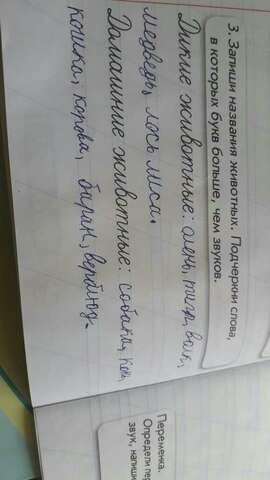 3. Запиши названия животных. Подчеркни слова,
в которых букв больше, чем звуков.
Дикие животные: олень, тигр, волк,
медведь, лось лиса.
Домашние животные: собака,
кошка, корова, баран, верблюд.
Переменка.
Определи пер
звук, напиши